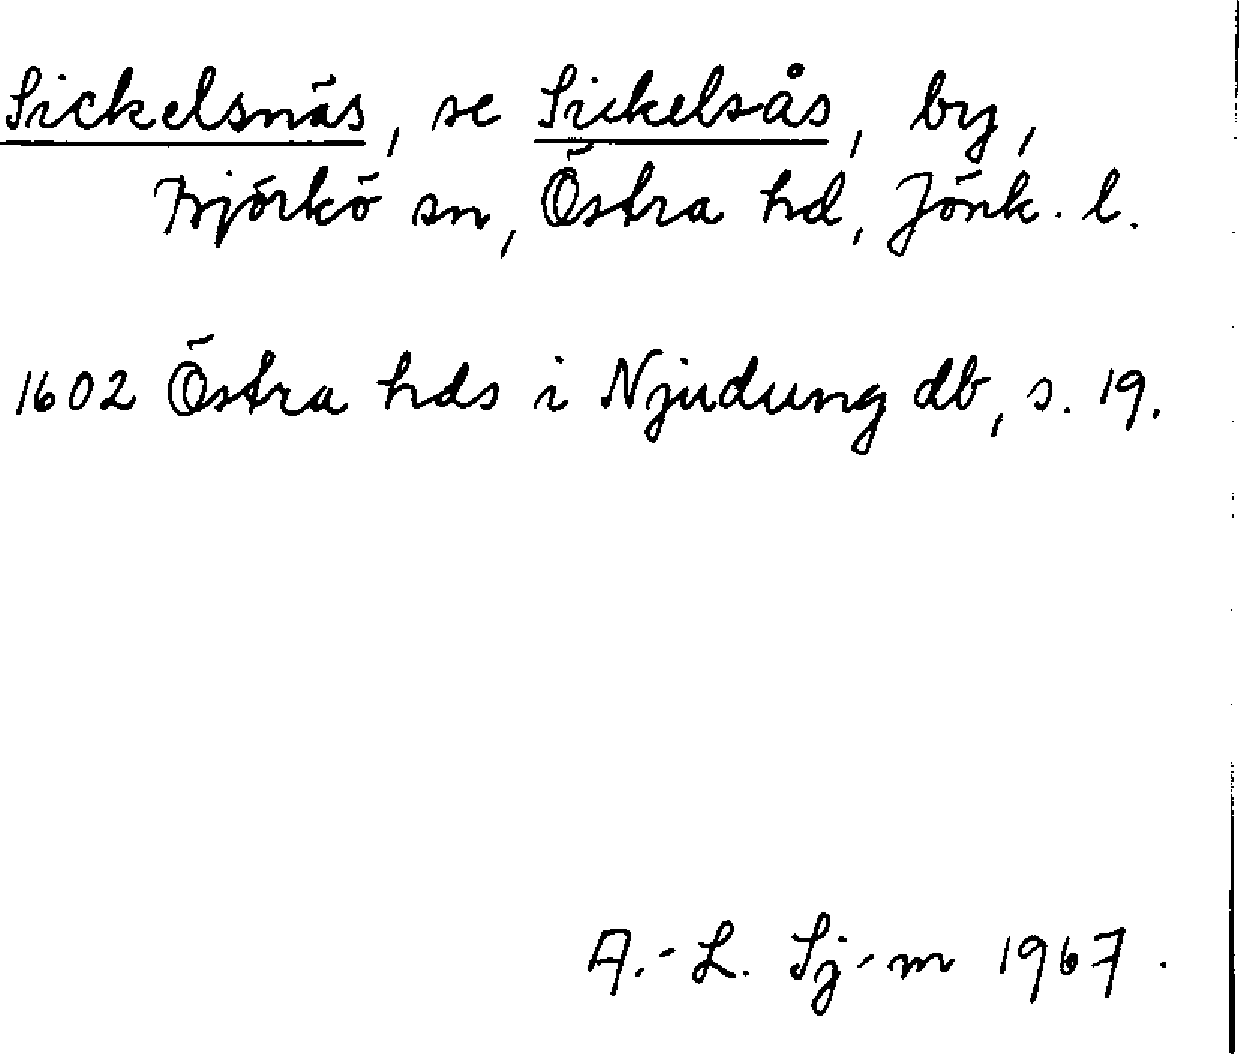 Sickelsnäs, se Sickelsås, by,
Bjórkö sn, Östra hd, Jönk. l.
1602 Östra hds i Njudung db, s. 19.
A.-L. Sj-m 1967.